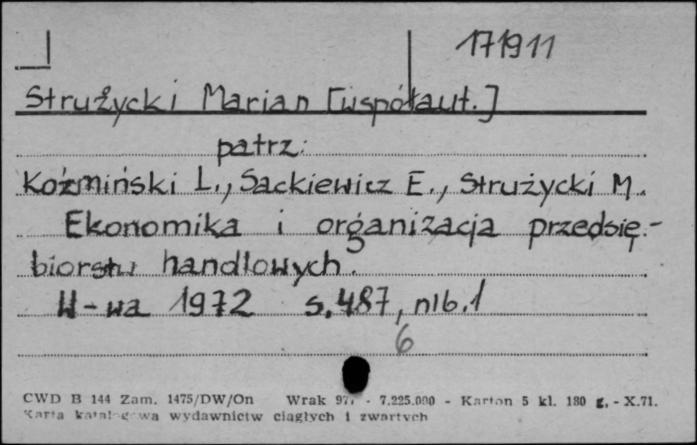 171911
Strużycki Marian [współaut.]
patrz:
Koźmiński L., Sackiewicz E., Strużycki M.
Ekonomika i organizacja przedsię-
biorstw handlowych.
W-wa 1972 s. 487, nlb. 1
6
CWD B 144 Zam. 1475/DW/On Wrak - 7.225.000 - Karton 5 kl. 180 g. - X.71.
Karta katalogowa wydawnictw ciągłych i zwartych